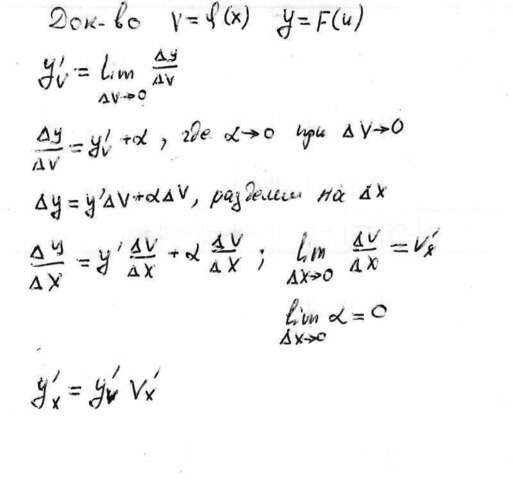 Док-во V = φ(x) y = F(u)
y'ᵥ = lim Δy/ΔV
ΔV→0
Δy/ΔV = y'ᵥ + α, где α→0 при ΔV→0
Δy = y'ΔV + αΔV, разделим на Δx
Δy/Δx = y' ΔV/Δx + α ΔV/Δx ; lim ΔV/Δx = V'ₓ
Δx→0
lim α = 0
Δx→0
y'ₓ = y'ᵥ V'ₓ